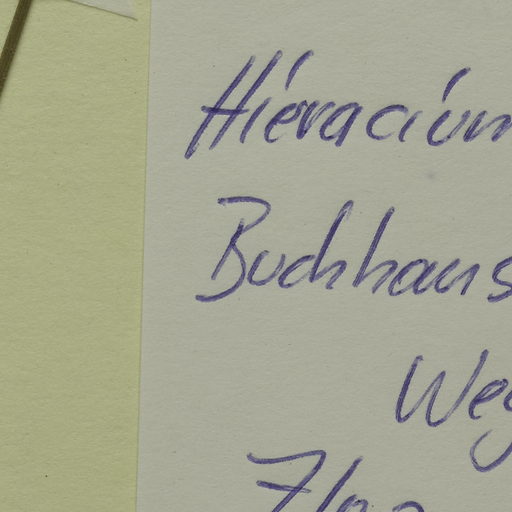 Hieracium
Buchhaus
Weg